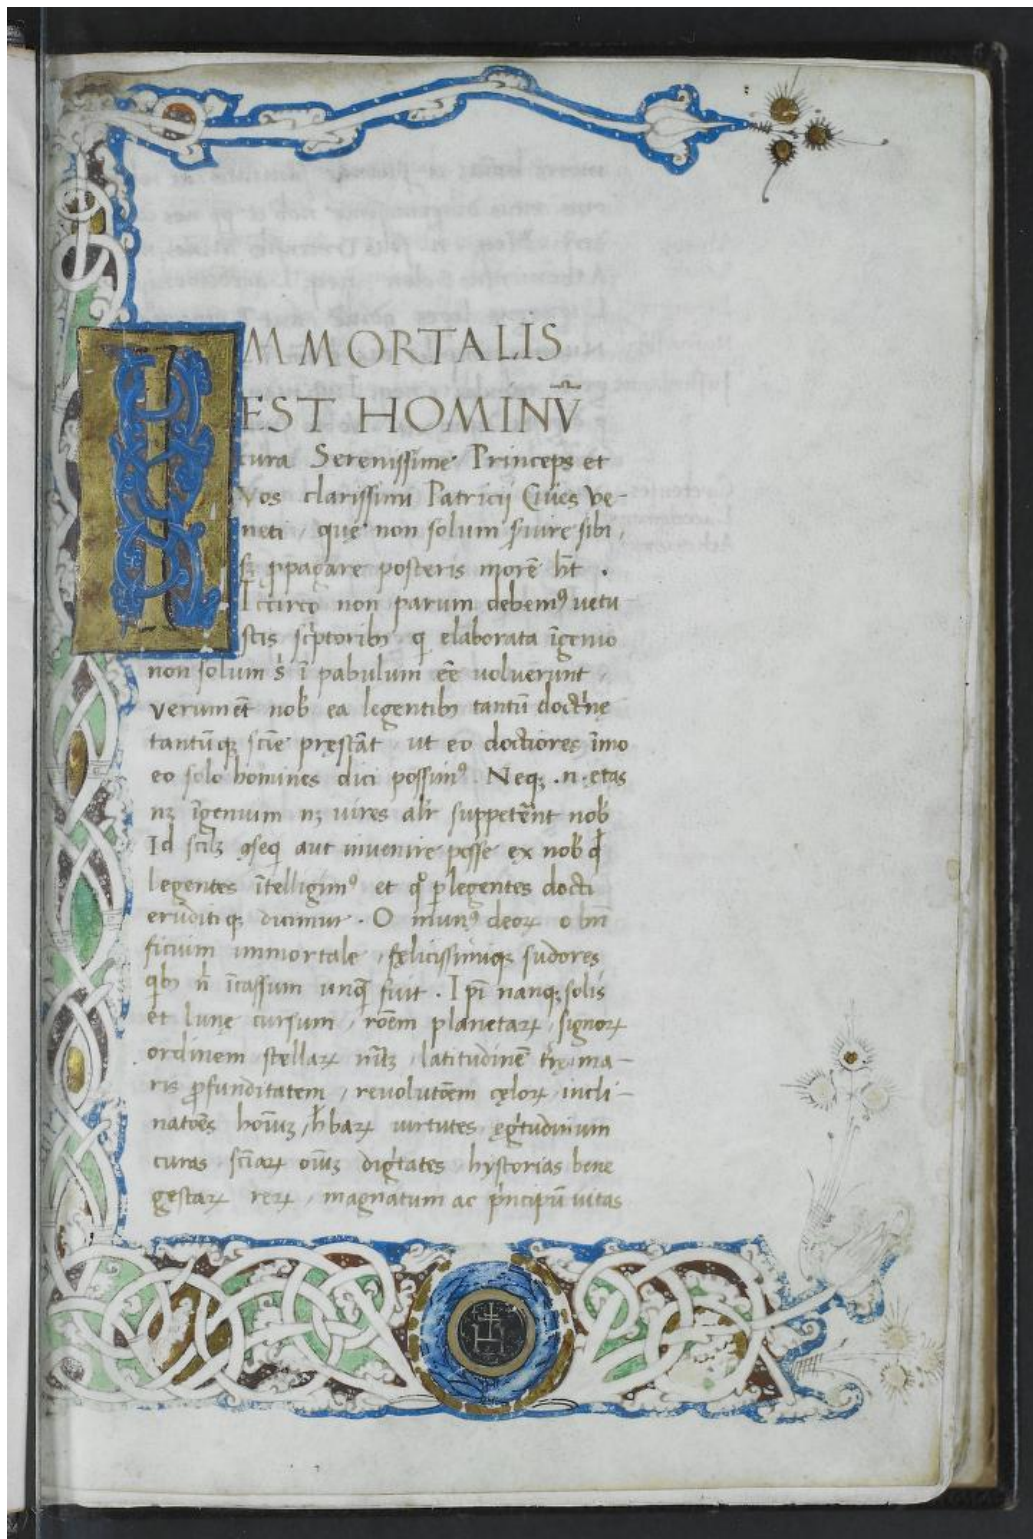 IMMORTALIS
EST HOMINŪ
cura Serenissime Princeps et
Vos clarissimi Patricij Ciues Ve-
neti, que non solum ſeruire sibi,
sꝫ ꝓpagare posteris morē hn̄t.
Iccirco non parum debemꝰ uetu-
stis scͥptoribꝫ q̄ elaborata īgenio
non solum sͥ ī pabulum eē uoluerunt,
verumēt nob̄ ea legentibꝫ tantū doctͥnę
tantūqꝫ scīe pręstāt, ut eo doctiores īmo
eo solo homines dici possimꝰ. Neqꝫ .n. etas
nꝫ īgenium nꝫ uires alr̄ suppetērnt nob̄
Id scilꝫ aut inuenire posse ex nob̄ qd̄
legentes ītelligimꝰ et qͦ ꝑlegentes docti
eruditiqꝫ ducimur. O munꝰ deoꝝ o bn̄
ficium immortale, fęlicissimiqꝫ sudores
qͥbꝫ n̄ īcassum unq̄ fuit. Ipī nanqꝫ solis
et lunę cursum, rōem planetaꝝ, signoꝝ
ordinem stellaꝝ latitudinē tr̄ę, ma-
ris ꝓfunditatem, reuolutōem cęloꝝ, incli-
natōes hoīuꝫ, hr̄baꝝ uirtutes, ęgͥtudinum
curas, scīaꝝ oīuꝫ digītates, hystorias bene
gestaꝝ reꝝ, magnatum ac pͥncipū uitas